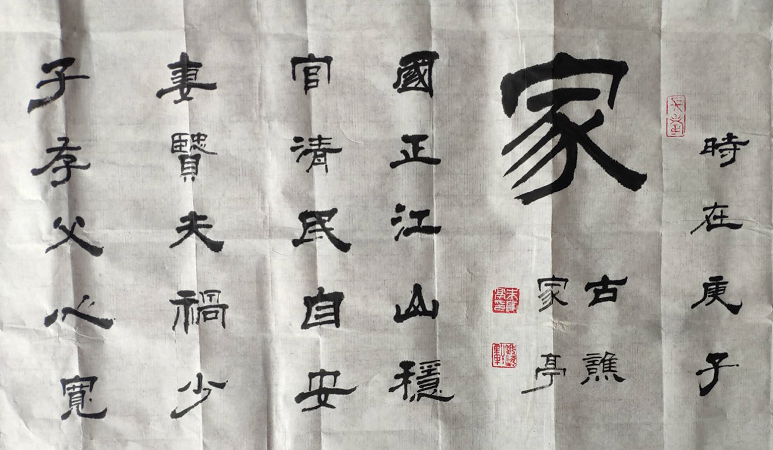 時在庚子
家
古譙
家亭
國正江山穩
官清民自安
妻賢夫禍少
子孝父心寬